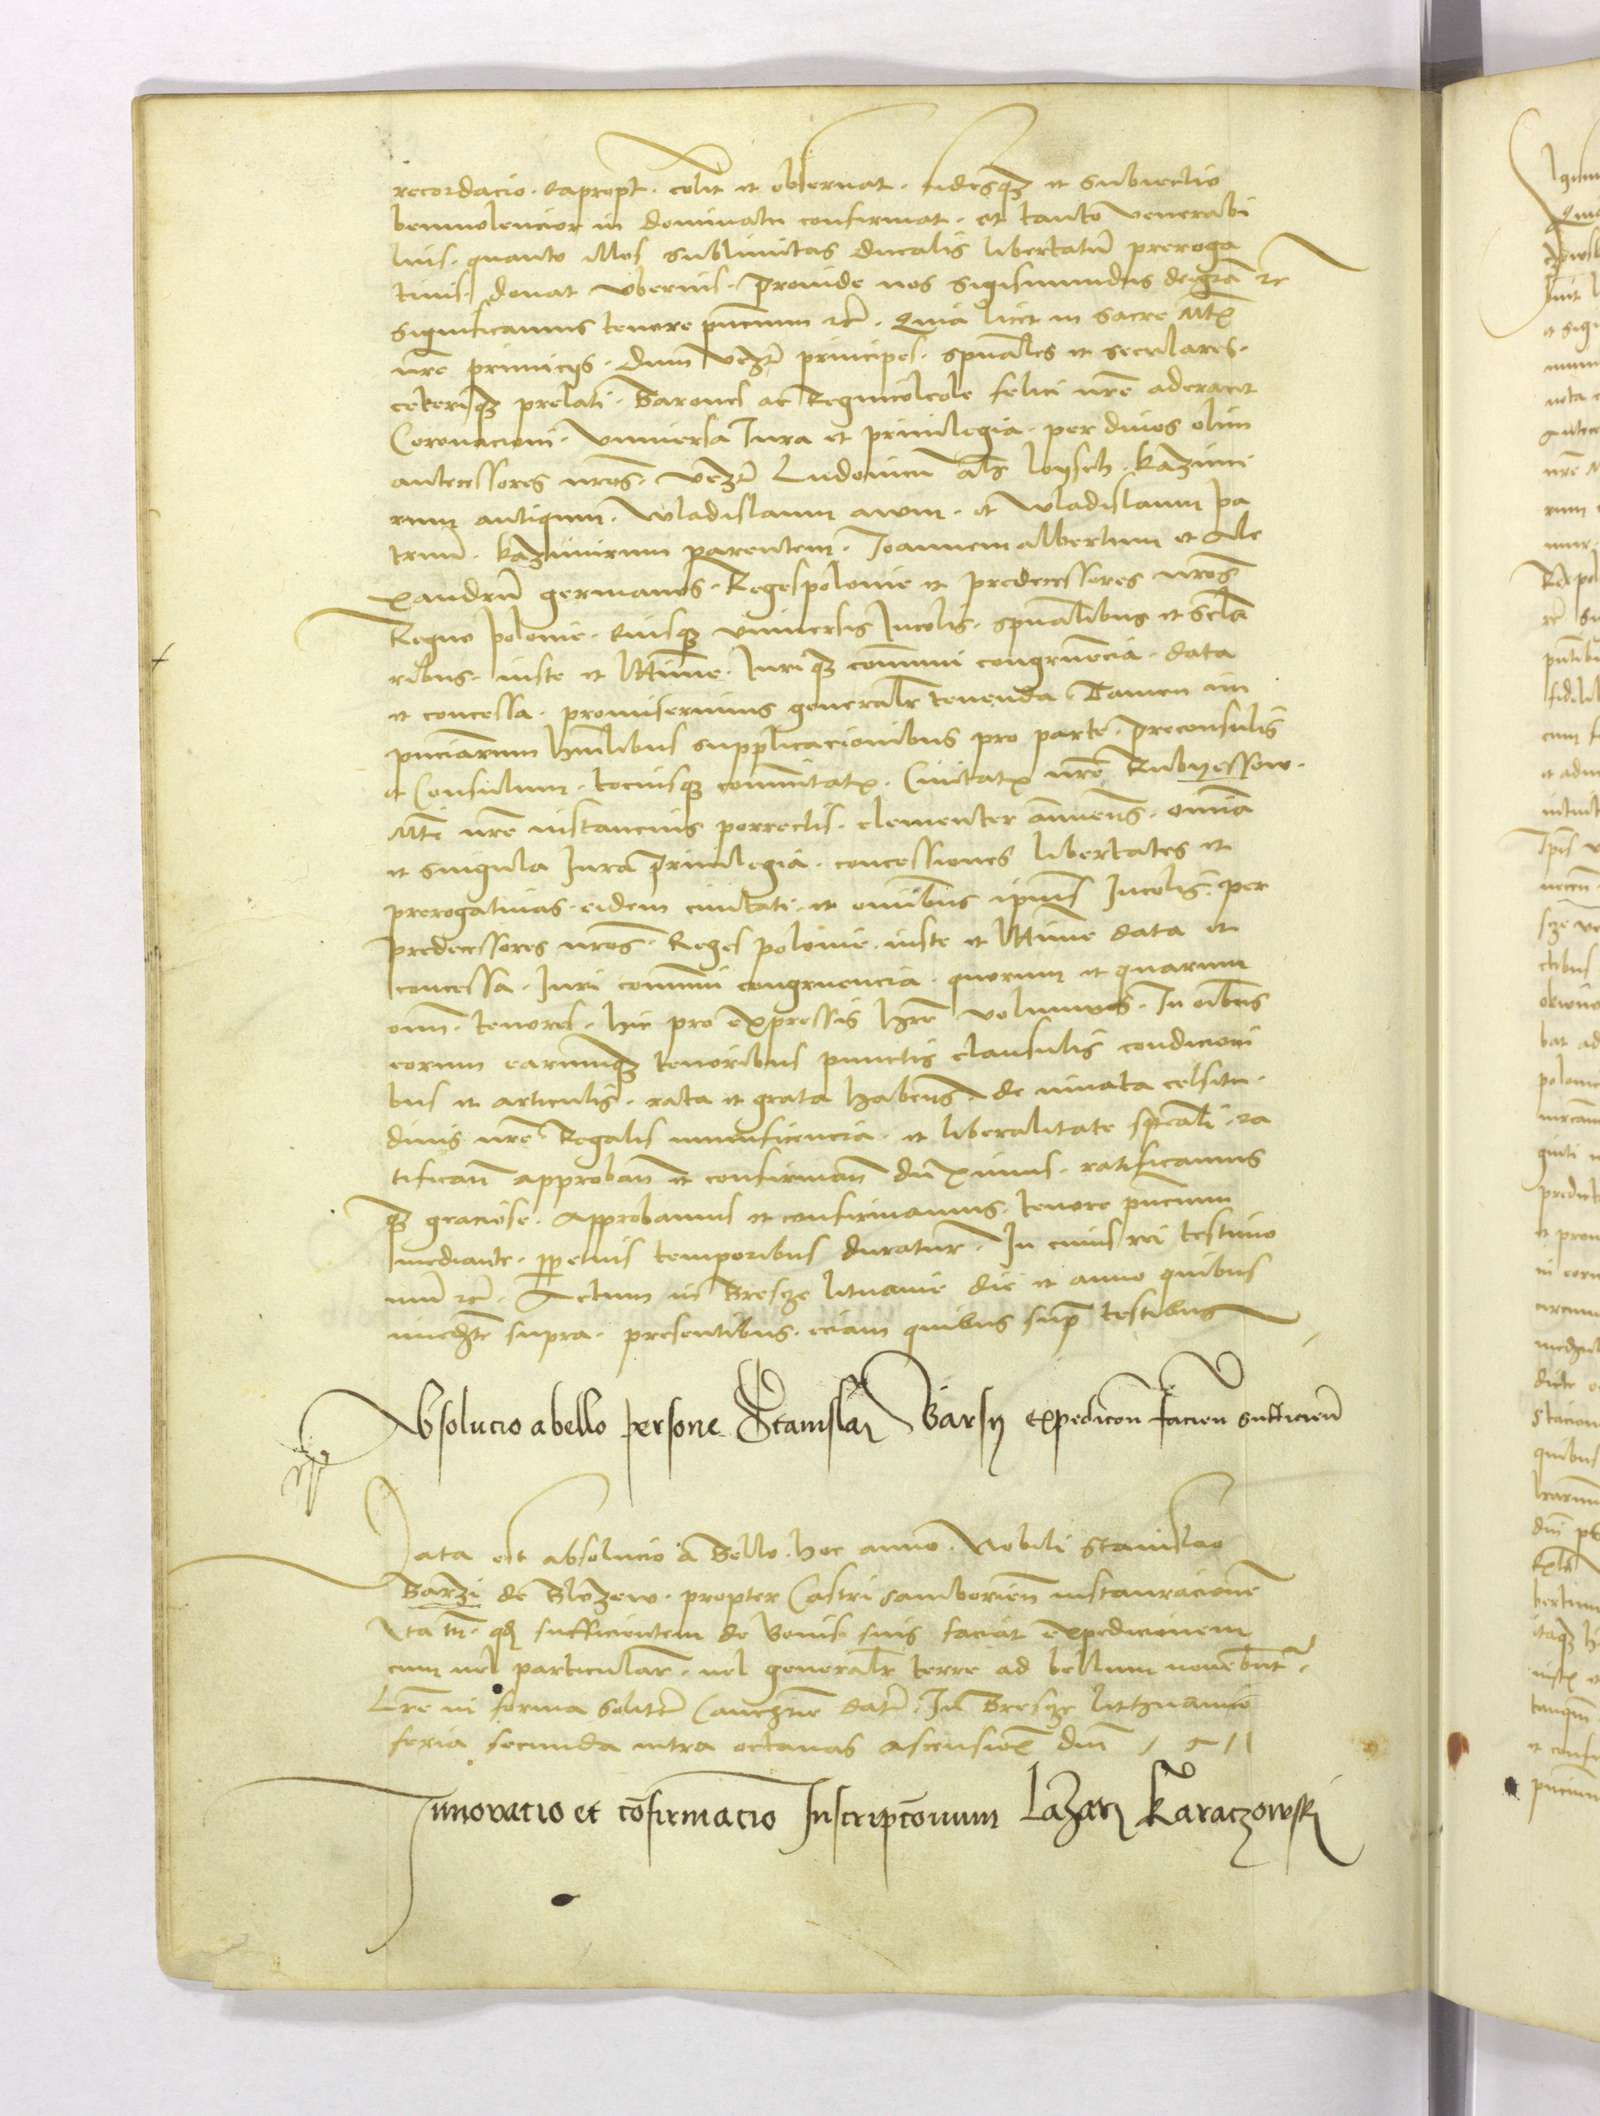 recordacio. eapropt. colit et obseruat. eidesqz et subiectio
beniuolencior in dominatu confirmat. et tanto venerabi
lius. quanto illos sublimitas ducalis libertatu preroga
tiuis donat vberius. Proinde nos Sigismundus dei gra etc
significamus tenore pncium etc. Quia licet in sacre Mtis
nre primicys. dum vczt principes. spuales et seculares.
ceteriqz prelati. Barones ac Regnicolcole felici nre aderant
Coronacioni. vniuersa Iura et priuilegia. per diuos olim
antecessores nros. vczt Ludouicu als loysch. kazimi
rum antiquum. wladislaum auum. et wladislaum pa
truu. kazimirum parentem. Ioannem albertum et Ale
xandru germanos. Reges polonie et predecessores nros
Regno polonie. eiusqz vniuersis Incolis. spualibus et secla
ribus. iuste et ltime. Iuriqz communi congruencia. data
et concessa. promiserimus generalr tenenda. Tamen im
punciarum humlibus supplicacionibus pro parte. preconsulis
et Consulum. tociusqz communitatis. Ciuitatis nre Rubyessow.
Mti nre instancius porrectis. clementer annuens. omnia
et singula Iura priuilegia. concessiones libertates et
prerogatiuas. eidem ciuitati. et omnibus ipius Incolis. per
predecessores nros. Reges polonie. iuste et ltime data et
concessa. Iuri communi congruencia. quorum et quarum
omn. tenores. hic pro expressis here volumus. In oibus
eorum earumqz tenoribus punctis clausulis condicioni
bus et articulis. rata et grata habens. de innata celsitu.
dinis nre Regalis munificencia. et liberalitate speali. ra
tifican approban et confirman duximus. ratificamus
qz graciose. Approbamus et confirmamus. tenore pncium
mediante. ppetuis temporibus duratur. In cuius rei testimo
nium etc. Actum in Bresze lituanie die et anno quibus
imedte supra. presentibus. eciam quibus supra testibus
Absolucio a bello persone Stanislai Barsy expedicon facien sufficien
Data est absolucio a Bello. hoc anno. Nobili Stanislao
Barzi de Blozew. propter Castri samborien instauracione
Ita tn. qd sufficientem de bonis suis faciat expedicionem
cum vel particulare. vel generalr terre ad bellum mouebunt.
Lre in forma solita Cancrie dat. In Bresze litthuanie
feria secunda intra octauas ascensiois dni 1511
Innovatio et cofirmacio Inscripconum Lazari Karaczowski